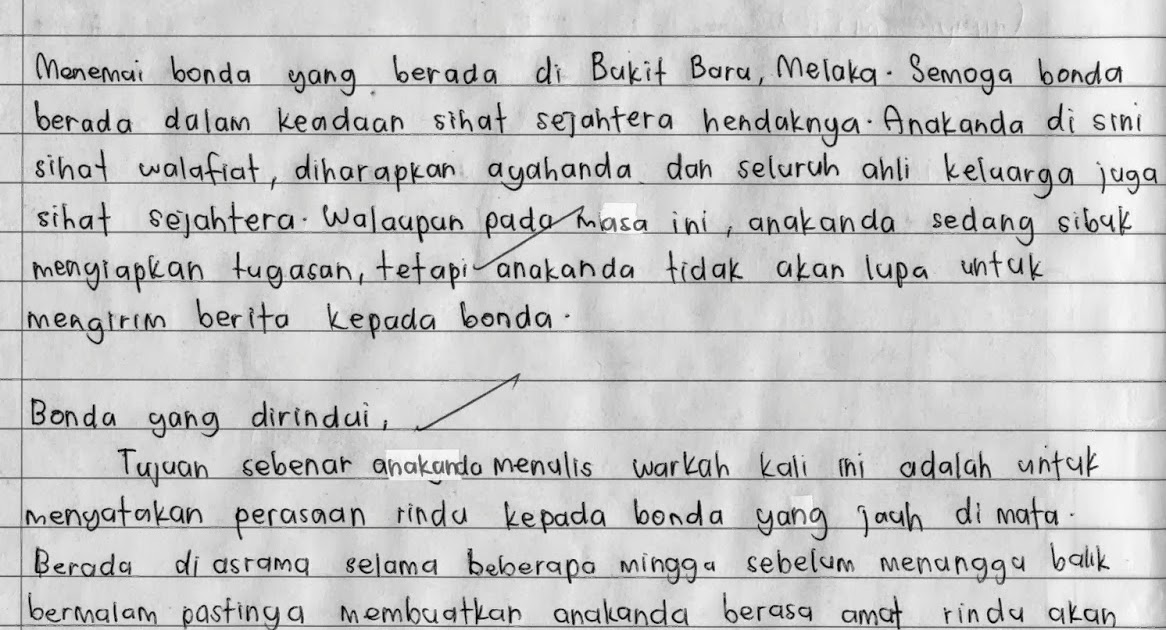 Menemui bonda yang berada di Bukit Baru, Melaka. Semoga bonda
berada dalam keadaan sihat sejahtera hendaknya. Anakanda di sini
sihat walafiat, diharapkan ayahanda dan seluruh ahli keluarga juga
sihat sejahtera. Walaupun pada masa ini, anakanda sedang sibuk
mengiapkan tugasan, tetapi anakanda tidak akan lupa untuk
mengirim berita kepada bonda.
Bonda yang dirindui,
Tujuan sebenar anakanda menulis warkah kali ini adalah untuk
menyatakan perasaan rindu kepada bonda yang jauh di mata.
Berada di asrama selama beberapa minggu sebelum menunggu balik
bermalam pastinya membuatkan anakanda berasa amat rindu akan